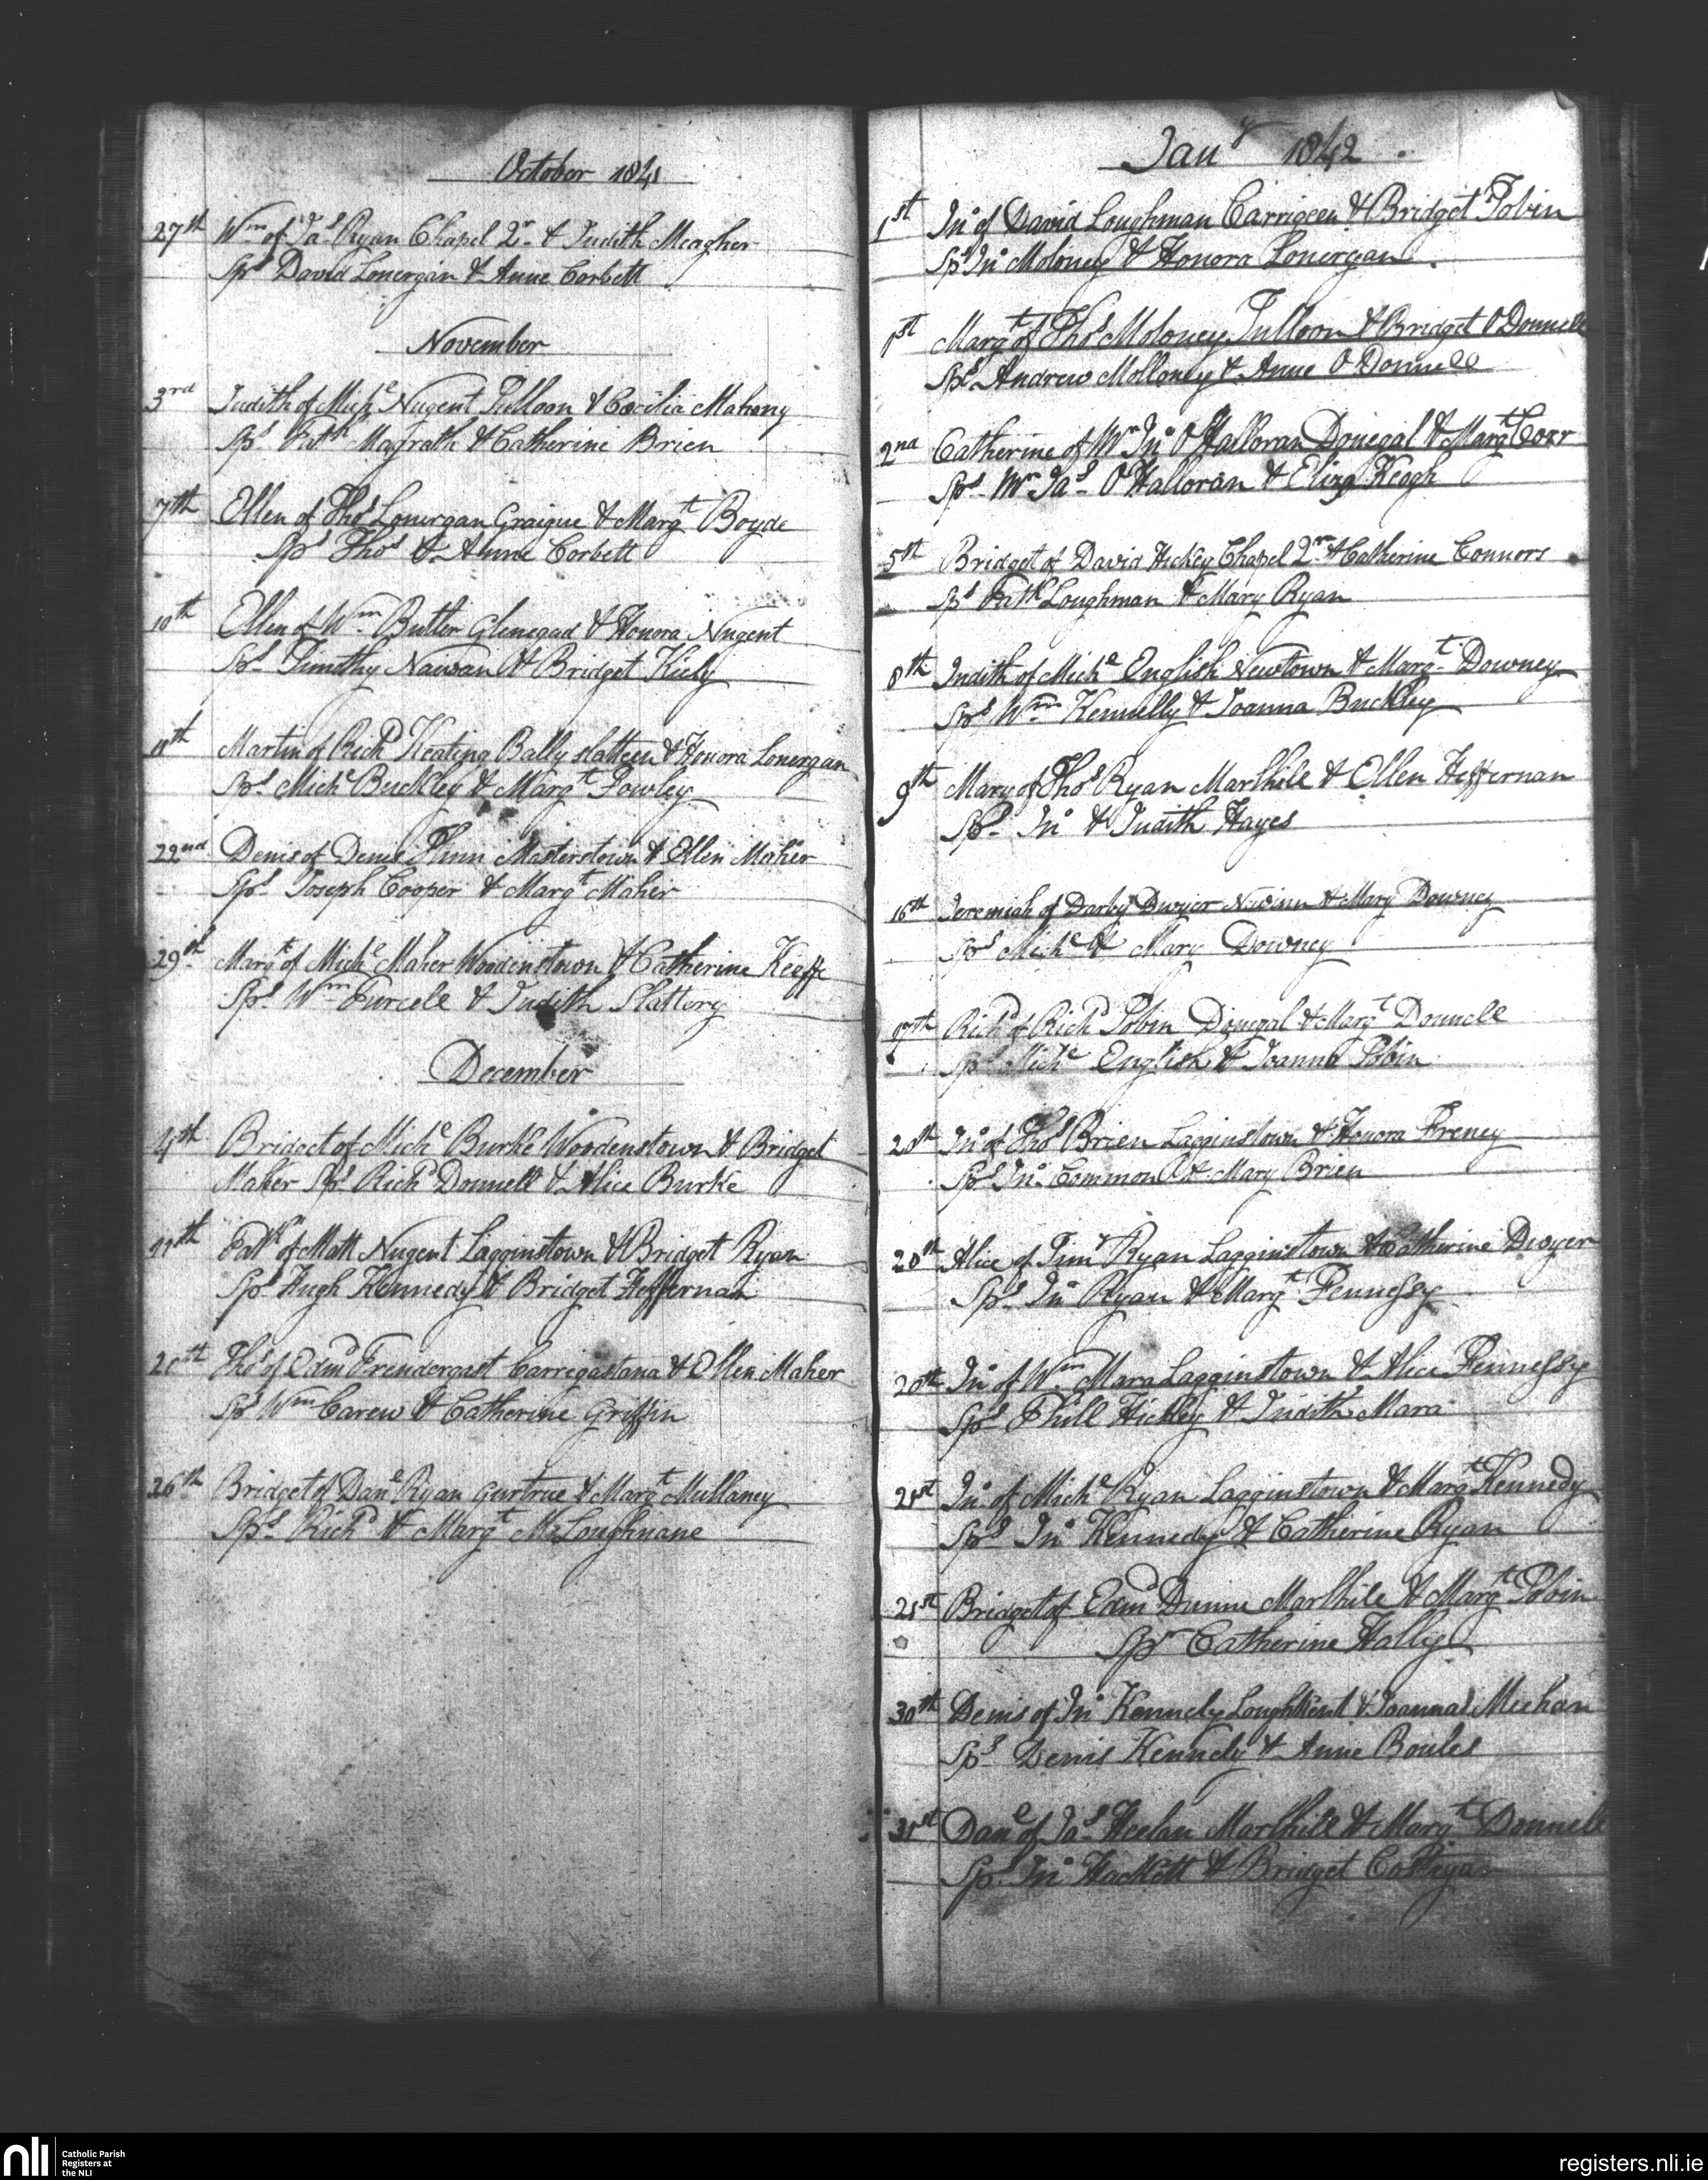 October 1841
27th Wm of Jas Ryan Chapel Qr & Judith Meagher
Sps David Lonergan & Anne Corbett
November
3rd Judith of Michl Nugent Tulloon & Cæcilia Mahony
Sps Patk Magrath & Catherine Brien
7th Ellen of Thos Lonergan Graigue & Margt Boyde
Sps Thos & Anne Corbett
10th Ellen of Wm Butler Glenegad & Honora Nugent
Sps Timothy Nawan & Bridget Kiely
11th Martin of Richd Keating Ballyslatteen & Honora Lonergan
Sps Michl Buckley & Margt Fowley
22nd Denis of Denis Flinn Masterstown & Ellen Maher
Sps Joseph Cooper & Margt Maher
29th Margt of Michl Maher Woodenstown & Catherine Keeffe
Sps Wm Purcell & Judith Slattery
December
4th Bridget of Michl Burke Woodenstown & Bridget
Maher Sps Richd Donnell & Alice Burke
11th Patk of Matt Nugent Lagginstown & Bridget Ryan
Sps Hugh Kennedy & Bridget Heffernan
20th Thos of Edmd Prendergast Carrigastana & Ellen Maher
Sps Wm Carew & Catherine Griffin
26th Bridget of Danl Ryan Gurtrue & Margt Mullaney
Sps Richd & Margt McLoughnane
Jany 1842
1st Jno of David Loughman Carrigeen & Bridget Tobin
Sps Jno Moloney & Honora Lonergan
1st Margt of Thos Moloney Tulloon & Bridget O Donnell
Sps Andrew Molloney & Anne O Donnell
2nd Catherine of Mr Jno O Halloran Donegal & Margt Corr
Sps Mr Jas O Halloran & Eliza Keogh
5th Bridget of David Hickey Chapel Qr & Catherine Connors
Sps Patk Loughman & Mary Ryan
8th Judith of Michl English Newtown & Margt Downey
Sps Wm Kennelly & Joanna Buckley
9th Mary of Thos Ryan Marlhill & Ellen Heffernan
Sps Jno & Judith Hayes
16th Jeremiah of Darby Dwyer & Mary Downey
Sps Michl & Mary Downey
17th Richd of Richd Tobin Donegal & Margt Donnell
Sps Michl English & Joanna Tobin
20th Jno of Thos Brien Lagginstown & Honora Freney
Sps Jno Common & Mary Brien
20th Alice of Timy Ryan Lagginstown & Catherine Dwyer
Sps Jno Ryan & Margt Fennessy
20th Jno of Wm Mara Lagginstown & Alice Fennessy
Sps Phill Hickey & Judith Mara
21st Jno of Michl Ryan Lagginstown & Margt Kennedy
Sps Jno Kennedy & Catherine Ryan
21st Bridget of Edmd Dunne Marlhill & Margt Tobin
Spr Catherine Hally
30th Denis of Jno Kennely Loughkent & Joanna Meehan
Sps Denis Kennely & Anne Boules
31st Danl of Jas Heelan Marlhill & Margt Donnell
Sps Jno Hackett & Bridget
nli
Catholic Parish
Registers at
the NLI
registers.nli.ie